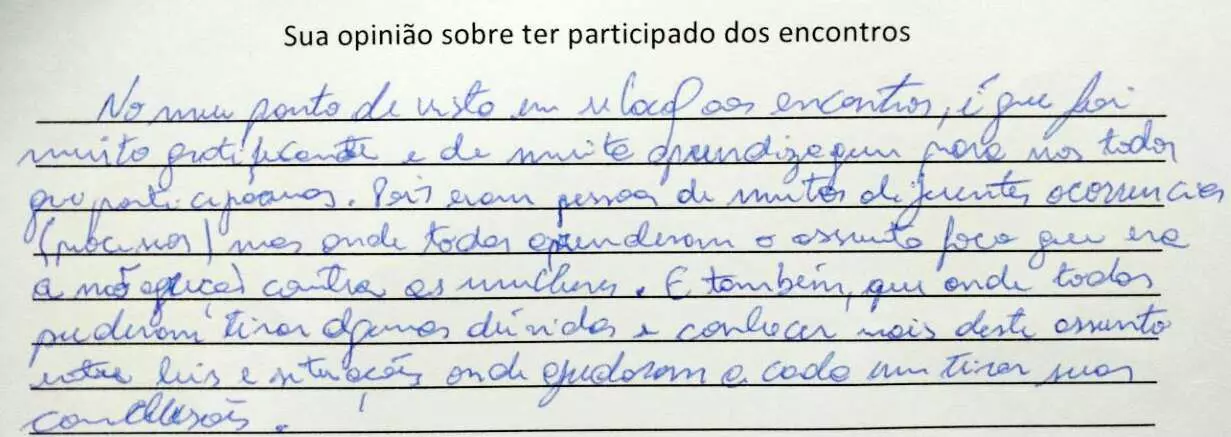 Sua opinião sobre ter participado dos encontros
No meu ponto de visto em relação aos encontros, é que foi
muito gratificante e de muito aprendizagem para nos todos
que participamos. Pois eram pessoas de muitos diferentes ocorrencias
(processos) mas onde todos aprenderam o assunto foco que era
a não contra as mulheres. E também, que onde todos
puderam tirar algumas dúvidas e conhecer mais deste assunto
entre leis e situações onde ajudaram a cada um tirar suas
conclusões.